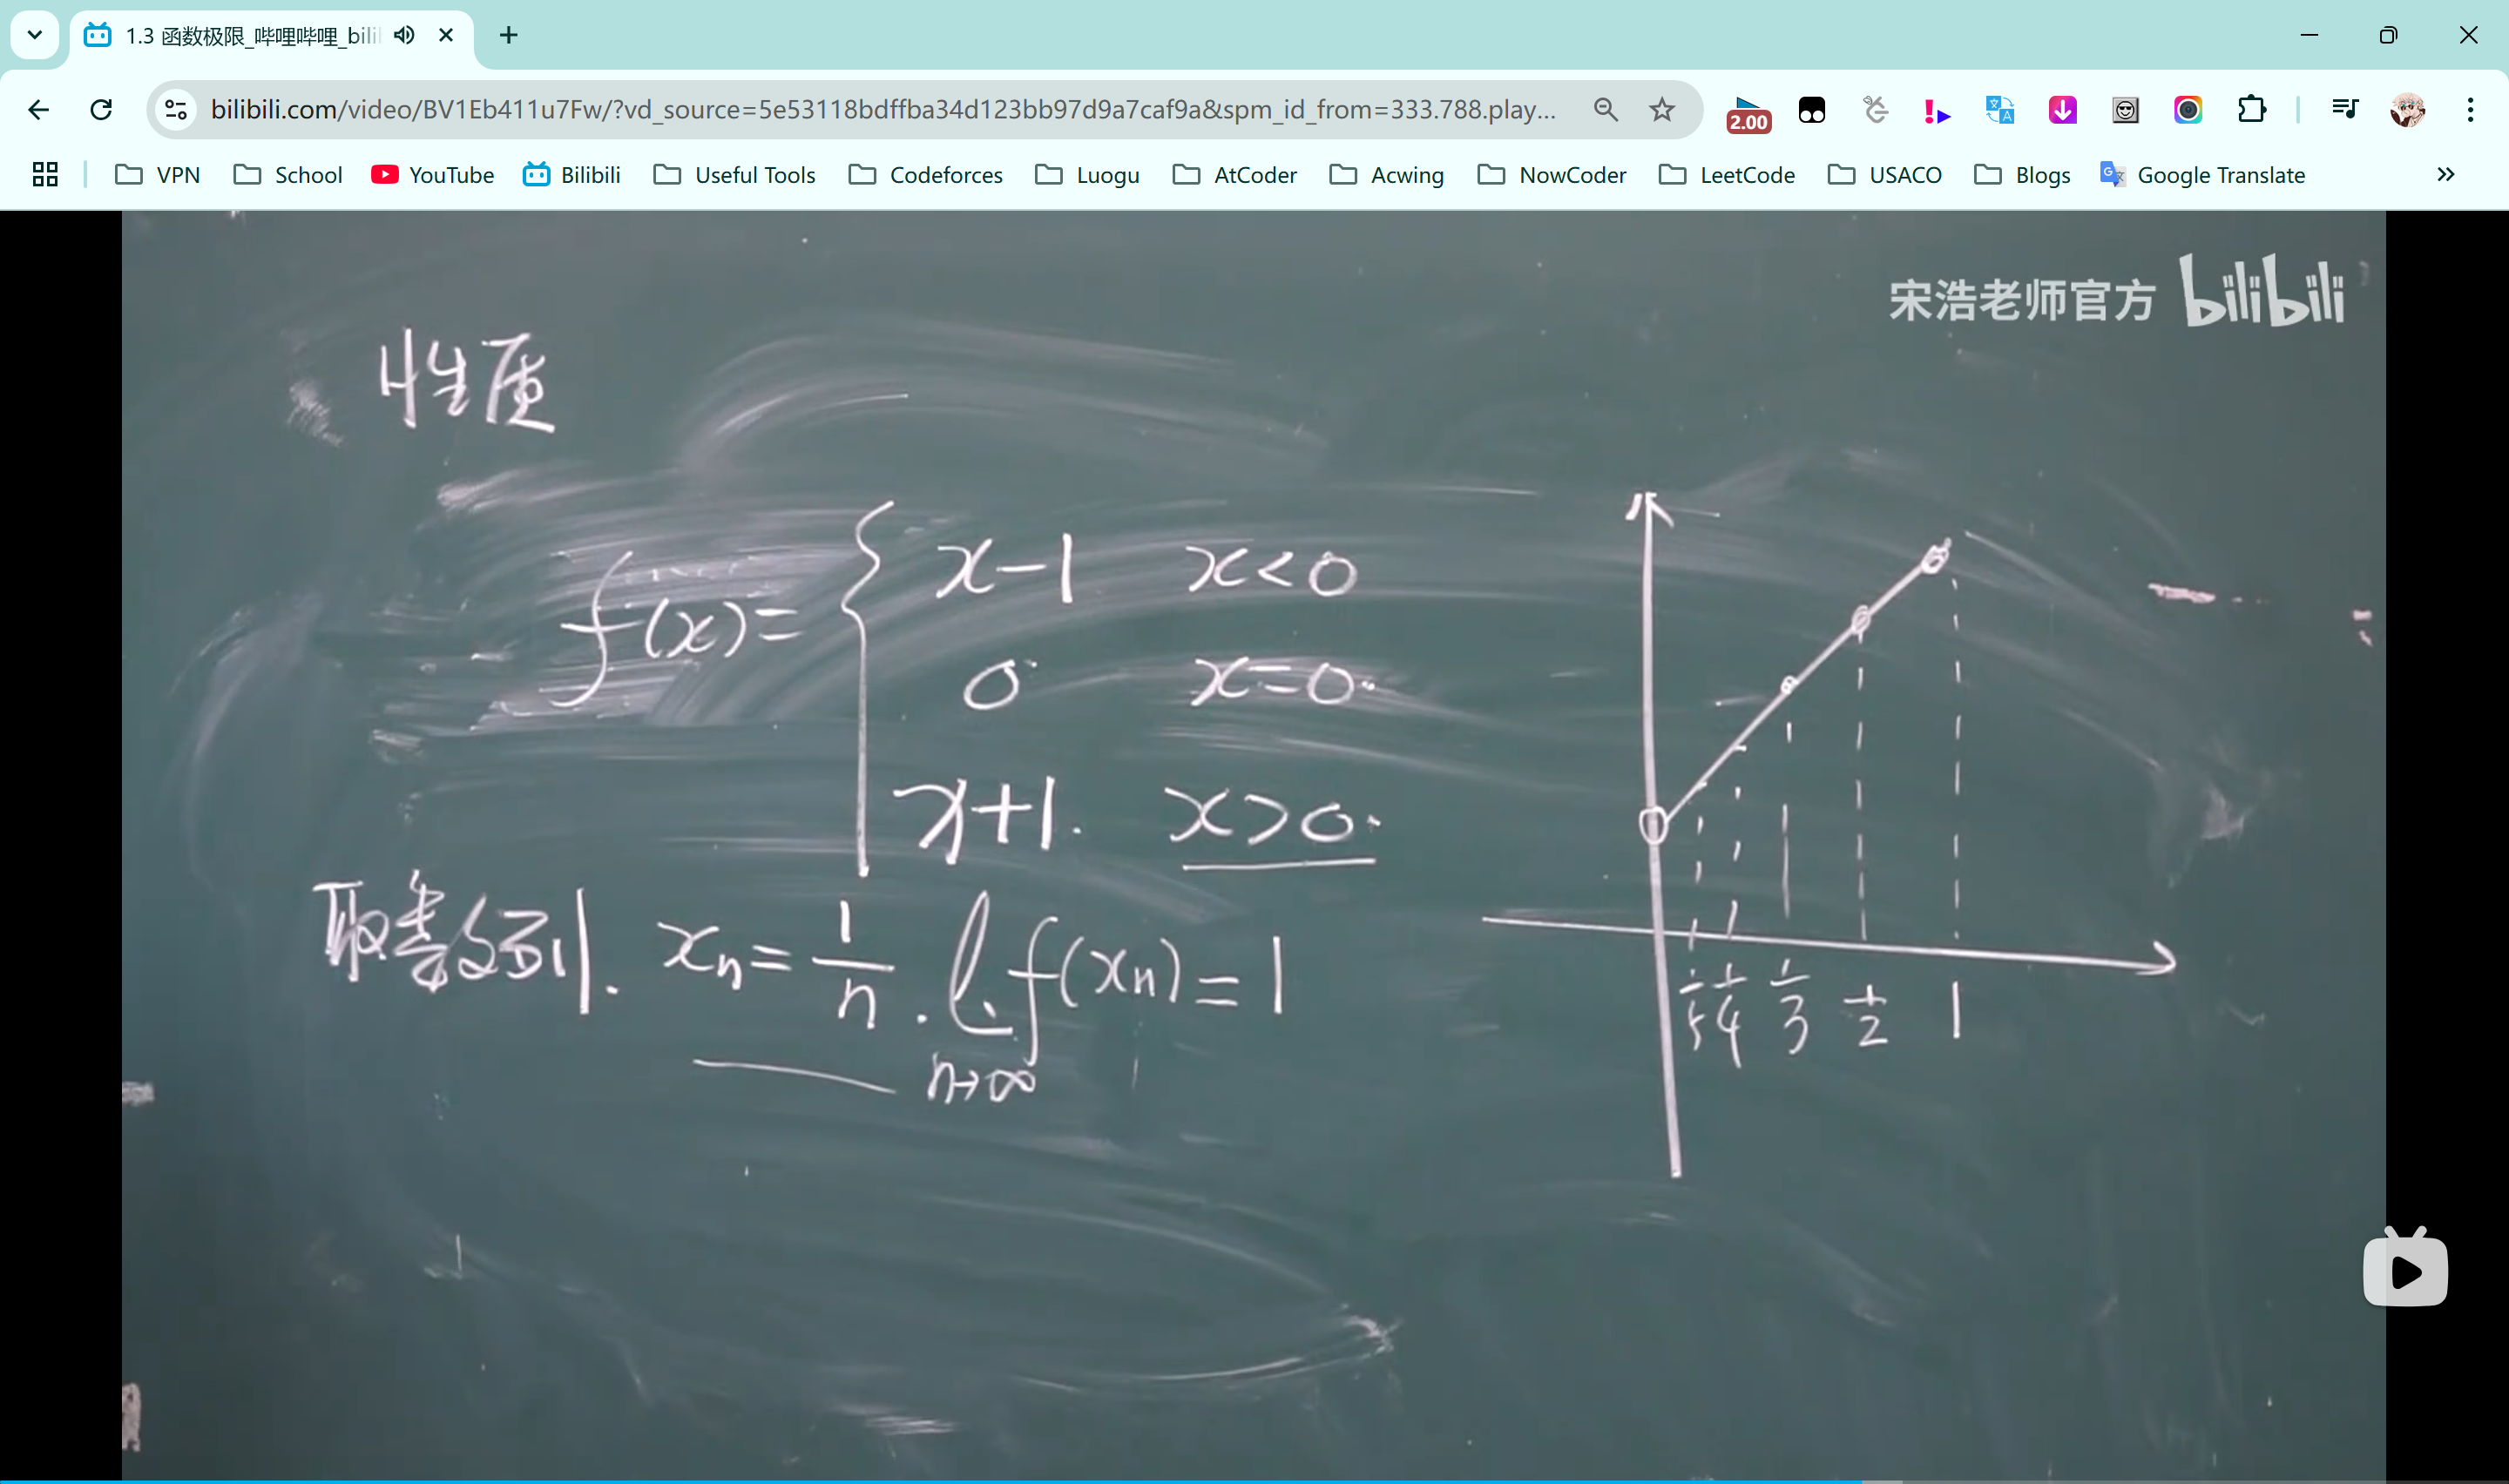 1.3 函数极限_哔哩哔哩_bili
bilibili.com/video/BV1Eb411u7Fw/?vd_source=5e53118bdffba34d123bb97d9a7caf9a&spm_id_from=333.788.play...
2.00
VPN School YouTube Bilibili Useful Tools Codeforces Luogu AtCoder Acwing NowCoder LeetCode USACO Blogs Google Translate
宋浩老师官方 bilibili
性质
f(x)= { x-1 x<0
0 x=0.
x+1. x>0.
取数列. xₙ = 1/n . lim f(xₙ) = 1
n→∞
1/5 1/4 1/3 1/2 1